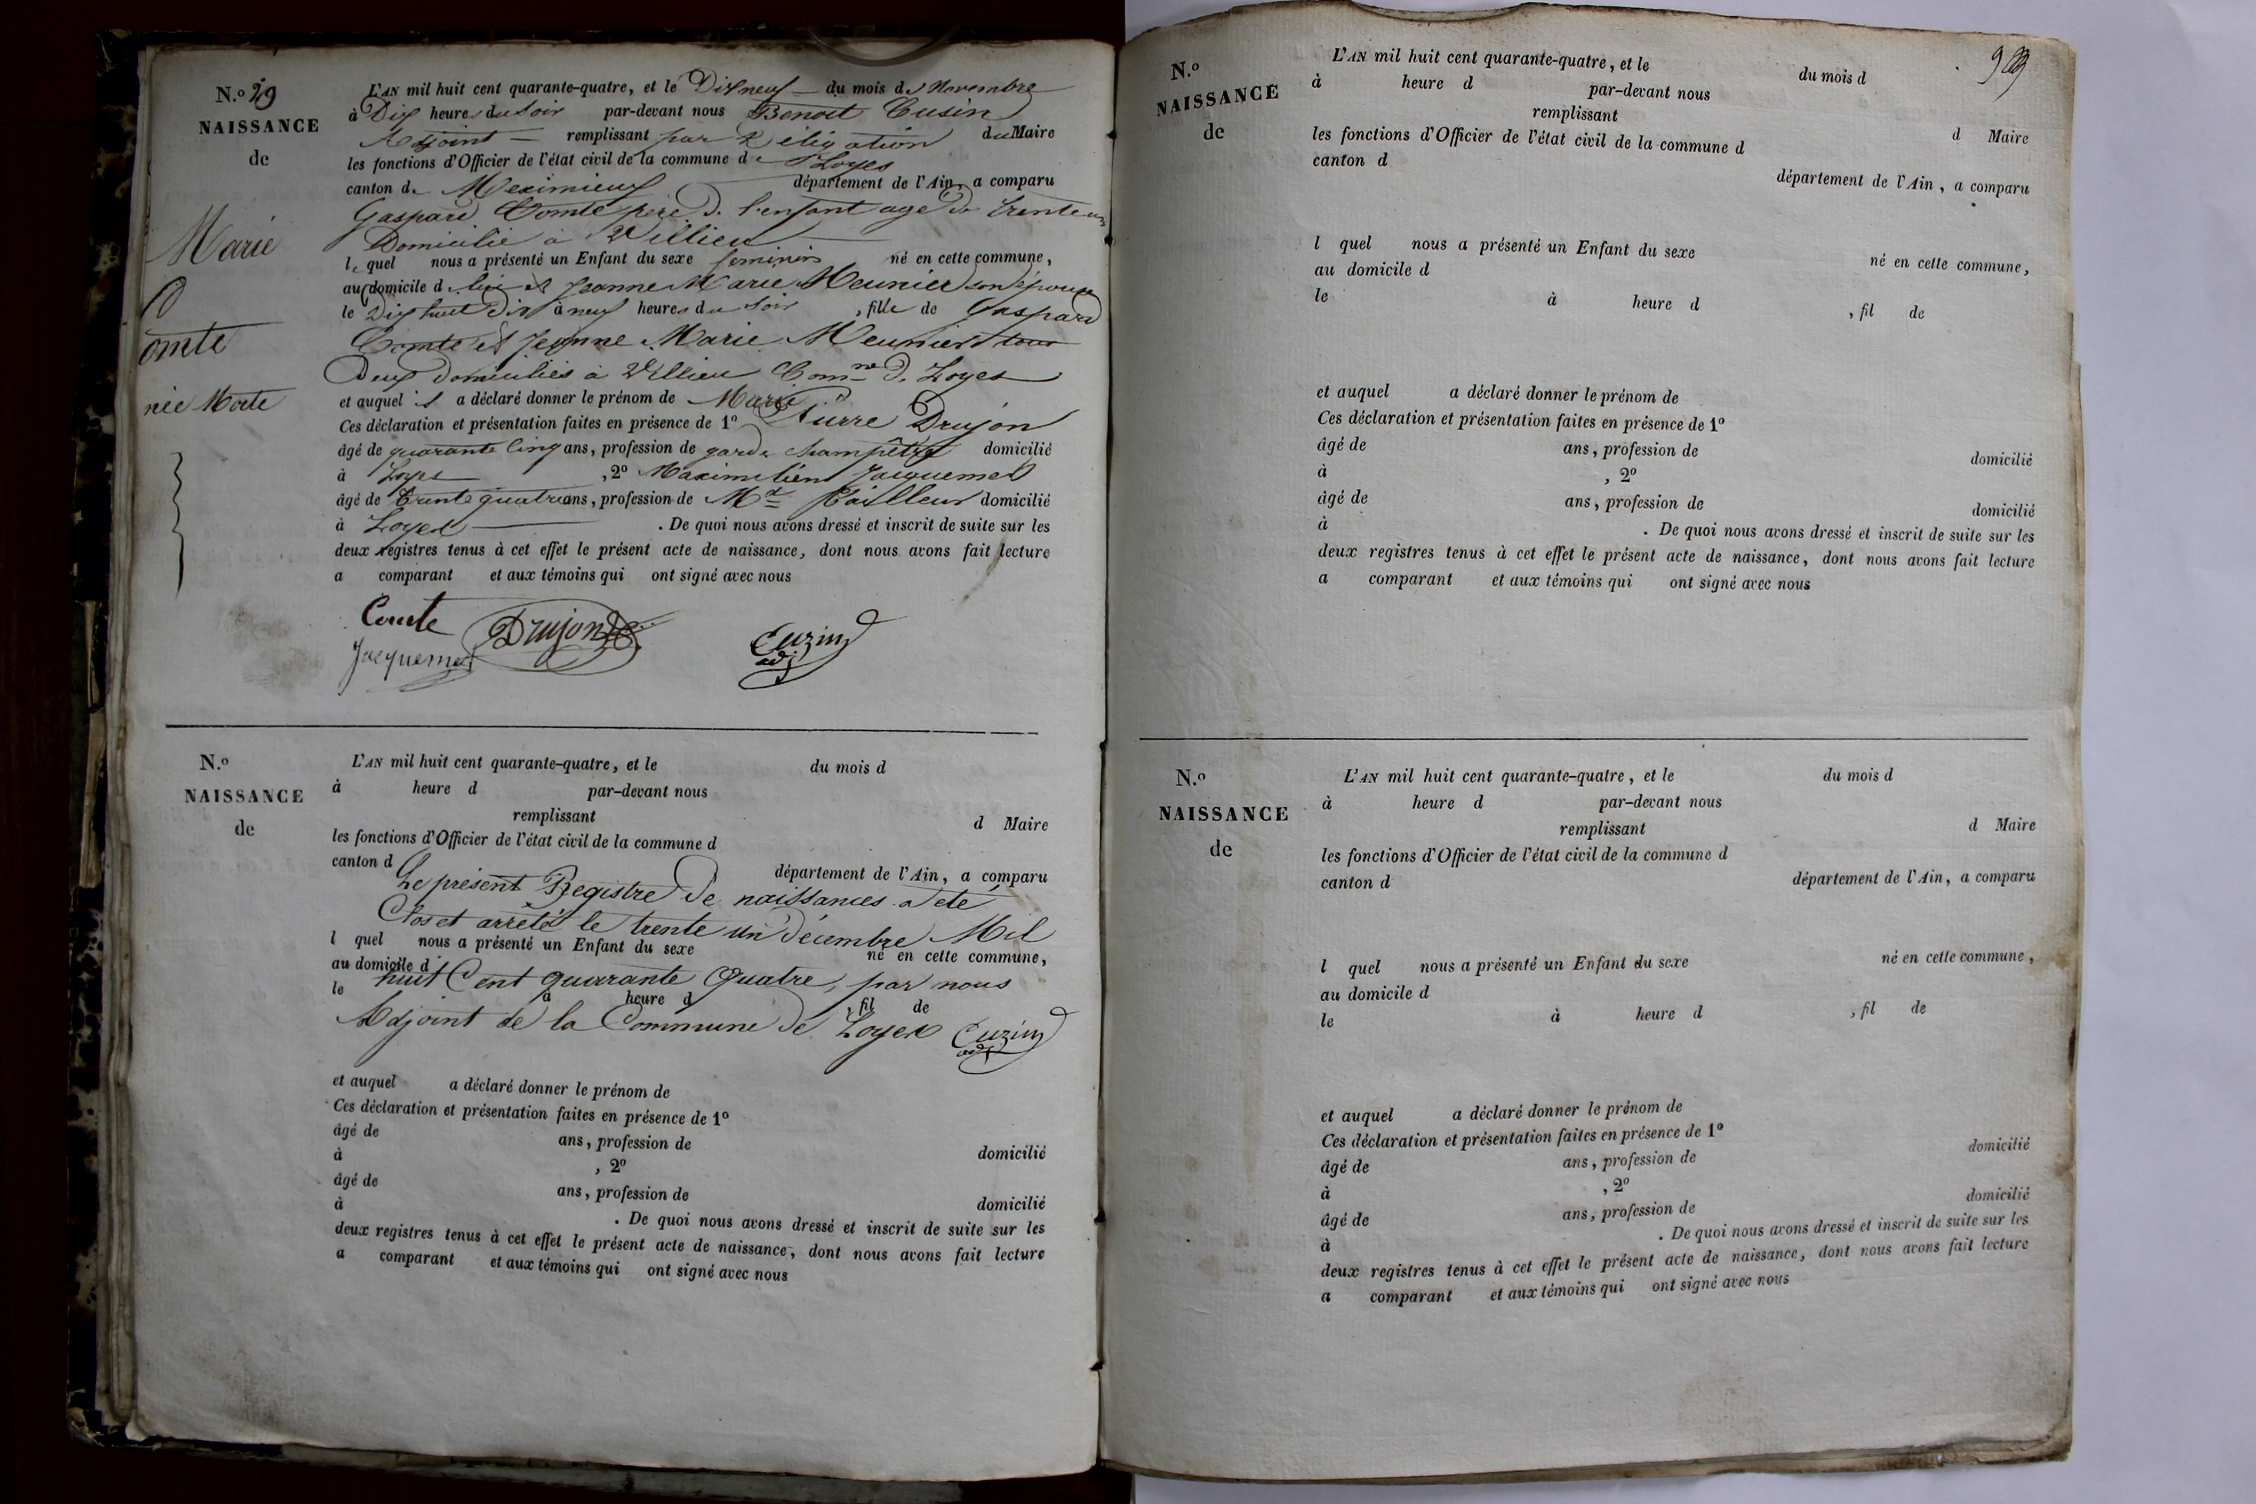 N.º 29
NAISSANCE
de
Marie
Comte
née Morte
L'AN mil huit cent quarante-quatre, et le Dix neuf du mois de Novembre
à Dix heures du soir par-devant nous Benoit Cusin
Adjoint remplissant par Délégation du Maire
les fonctions d'Officier de l'état civil de la commune de Loyes
canton de Meximieux département de l'Ain, a comparu
Gaspard Comte père de l'enfant agé de trente
Domicilié à Villieu
le quel nous a présenté un Enfant du sexe feminin né en cette commune,
au domicile de lui et Jeanne Marie Meunier son épouse
le Dix huit Dix à neuf heures du soir, fille de Gaspard
Comte et Jeanne Marie Meunier tous
Deux domiciliés à Villieu Comne de Loyes
et auquel il a déclaré donner le prénom de Marie
Ces déclaration et présentation faites en présence de 1º Pierre Drujon
âgé de quarante cinq ans, profession de garde champêtre domicilié
à Loyes, 2º Maximilien Jacquemet
âgé de trente quatre ans, profession de Md Tailleur domicilié
à Loyes. De quoi nous avons dressé et inscrit de suite sur les
deux registres tenus à cet effet le présent acte de naissance, dont nous avons fait lecture
a comparant et aux témoins qui ont signé avec nous
Comte Drujon
Jacquemet Cuzin
adj
N.º
NAISSANCE
de
L'AN mil huit cent quarante-quatre, et le du mois d
à heure d par-devant nous
remplissant d Maire
les fonctions d'Officier de l'état civil de la commune d
canton d département de l'Ain, a comparu
Le présent Registre de naissances a été
Clos et arrêté le trente un décembre Mil
l quel nous a présenté un Enfant du sexe né en cette commune,
au domicile d
huit Cent quarante Quatre, par nous
le à heure d , fil de
Adjoint de la Commune de Loyes Cuzin
adj
et auquel a déclaré donner le prénom de
Ces déclaration et présentation faites en présence de 1º
âgé de ans, profession de domicilié
à , 2º
âgé de ans, profession de domicilié
à . De quoi nous avons dressé et inscrit de suite sur les
deux registres tenus à cet effet le présent acte de naissance, dont nous avons fait lecture
a comparant et aux témoins qui ont signé avec nous
N.º
NAISSANCE
de
L'AN mil huit cent quarante-quatre, et le du mois d
à heure d par-devant nous
remplissant d Maire
les fonctions d'Officier de l'état civil de la commune d
canton d département de l'Ain, a comparu
l quel nous a présenté un Enfant du sexe né en cette commune,
au domicile d
le à heure d , fil de
et auquel a déclaré donner le prénom de
Ces déclaration et présentation faites en présence de 1º
âgé de ans, profession de domicilié
à , 2º
âgé de ans, profession de domicilié
à . De quoi nous avons dressé et inscrit de suite sur les
deux registres tenus à cet effet le présent acte de naissance, dont nous avons fait lecture
a comparant et aux témoins qui ont signé avec nous
N.º
NAISSANCE
de
L'AN mil huit cent quarante-quatre, et le du mois d
à heure d par-devant nous
remplissant d Maire
les fonctions d'Officier de l'état civil de la commune d
canton d département de l'Ain, a comparu
l quel nous a présenté un Enfant du sexe né en cette commune,
au domicile d
le à heure d , fil de
et auquel a déclaré donner le prénom de
Ces déclaration et présentation faites en présence de 1º
âgé de ans, profession de domicilié
à , 2º
âgé de ans, profession de domicilié
à . De quoi nous avons dressé et inscrit de suite sur les
deux registres tenus à cet effet le présent acte de naissance, dont nous avons fait lecture
a comparant et aux témoins qui ont signé avec nous